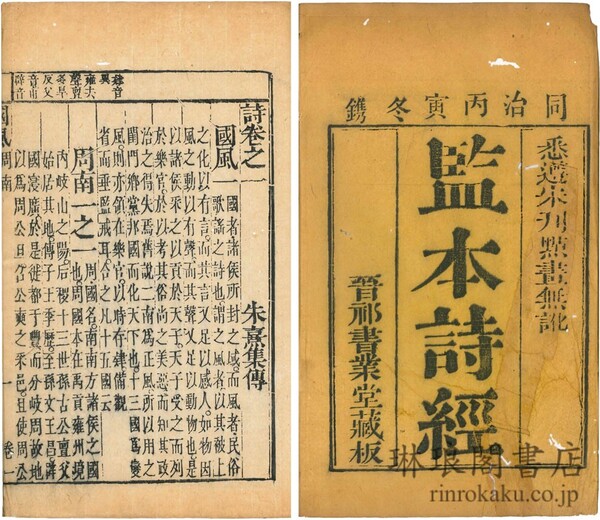 同治丙寅冬鐫
悉遵
刋點畫無訛
監本詩經
晉祁書業堂藏板
詩卷之一
朱熹集傳
國風一
國者諸侯所封之域而風者民俗
歌謠之詩也謂之風者以其被上
之化以有言而其言又足以感人如物因
風之動以有聲而其聲又足以動物也是
以諸侯采之以貢於天子天子受之而列
於樂官於以考其俗尚之美惡而知其政
治之得失焉舊說二南為正風所以用之
閨門鄉黨邦國而化天下也十三國為變
風則亦領在樂官以時存肄備觀
省而垂監戒耳合之凡十五國云
周南一之一
周國名南南方諸侯之國
也周國本在禹貢雍州境
內岐山之陽后稷十三世孫古公亶父
始居其地傳子王季歷至孫文王昌辟
國寖廣於是徙都于豐而分岐周故地
以為周公旦召公奭之采邑且使周公
雍去
聲亶
多旱
反父
音甫
辟音
國風
周南
一
卷一
琳琅閣書店
rinrokaku.co.jp